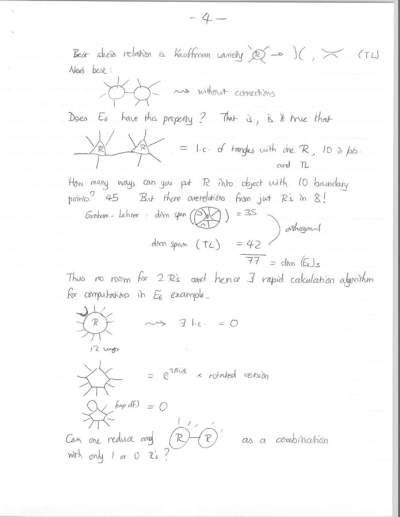 - 4 -
Best skein relation is Kauffman variety R → )( , ≍ (TL)
Next best:
⇝ without connections.
Does E6 have this property? That is, is it true that
R R = l.c. of tangles with one R, 10 pts.
and TL
How many ways can you put R into object with 10 boundary
points? 45 But there are relations from just R's in 8!
Graham-Lehrer: dim span ( ) = 35
dim span (TL) = 42
orthogonal
77 = dim (E6)5
Thus no room for 2 R's and hence ∃ rapid calculation algorithm
for computations in E6 example.
R ⇝ ∃ l.c. = 0
12 ways
= e × rotated version
(cap off) = 0
Can one reduce any R R as a combination
with only 1 or 0 R's?